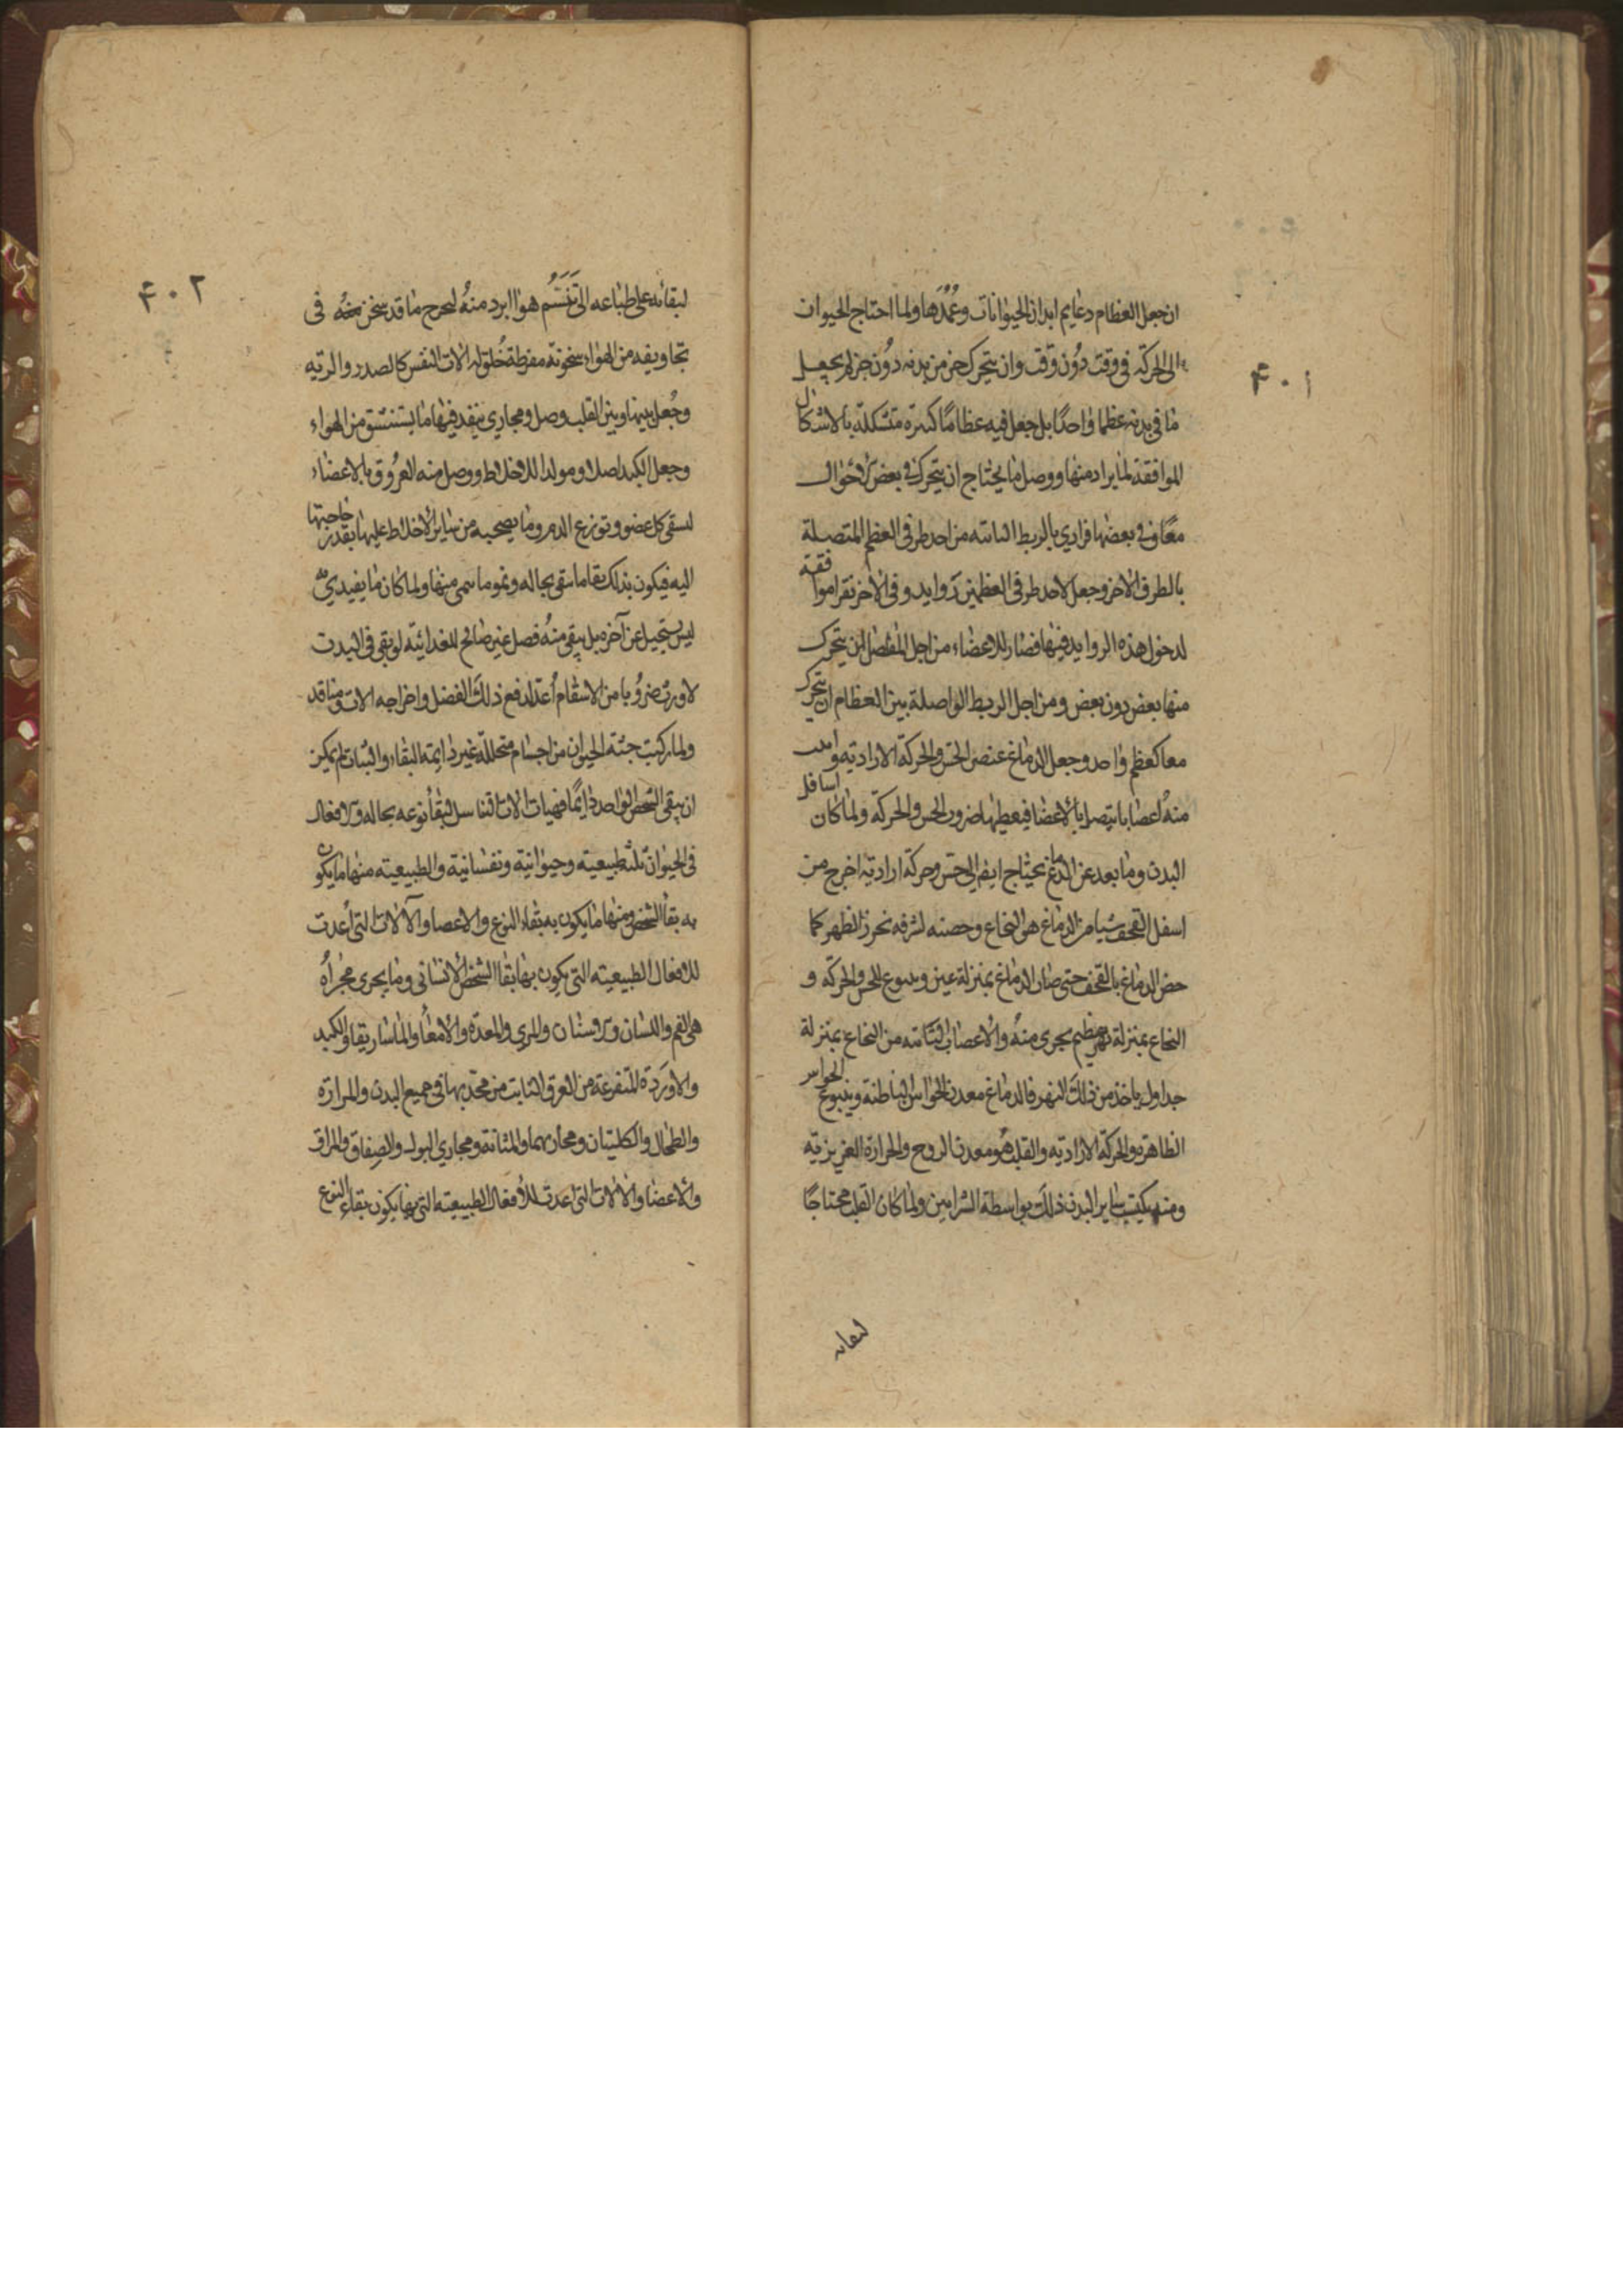 ان جعل العظام دعايم ابدان الحيوانات وعُمُدَها ولما احتاج الحيوان
٤٠١
الى الحركة فى وقت دُون وقت وان يتحرك جزء من بدنه دُون جزء لم يجعل
ما فى بدنه عظما واحدًا بل جعل فيه عظامًا كثيرة متشكلة بالاشكال
الموافقة لما يراد منها ووصل ما يحتاج ان يتحرك فى بعض الاحوال
معًا وفى بعضها فرادي بالربط النابتة من احد طرفى العظم المتصلة
بالطرف الاخر وجعل لاحد طرفى العظمين زوايد وفى الاخر نقرا موافقة
لدخول هذه الزوايد فيها فصار للاعضاء من اجل المفاصل ان يتحرك
منها بعض دون بعض ومن اجل الربط الواصلة بين العظام ان يتحرك
معا كعظم واحد وجعل الدماغ عنصر الحس والحركة الارادية وانبت
منهُ اعصابا يتصل بالاعضا فيعطيها ضروب الحس والحركة ولما كان اسافل
البدن وما بعد عن الدماغ يحتاج ايضا الى حس وحركة ارادية اخرج من
اسفل القحف شيا من الدماغ هو النخاع وحصنه لشرفه بخرز الظهر كما
حصن الدماغ بالقحف حتى صار الدماغ بمنزلة عين وينبوع للحس والحركة و
النخاع بمنزلة نهر عظيم يجرى منهُ والاعصاب النابتة من النخاع بمنزلة
جداول ياخذ من ذلك النهر فالدماغ معدن الحواس الباطنة وينبوع الحواس
الظاهرة والحركة الارادية والقلب هُو معدن الروح والحرارة الغريزية
ومنه يكتسب ساير البدن ذلك بواسطة الشرايين ولما كان القلب محتاجًا
لبقائه
٤٠٢
لبقائه على طباعه الى تَنَسُّم هوا ابرد منهُ ليخرج ما قد سخن منهُ فى
تجاويفه من الهواء سخونة مفرطة خُلق له الات النفس كالصدر والرية
وجُعل بينها وبين القلب وصل ومجاري ينفد فيها ما يستنشق من الهواء
وجعل الكبد اصلا ومولدا للاخلاط ووصل منه العرُوق بالاعضاء
لسقى كل عضو وتوزع الدم وما يصحبه من ساير الاخلاط عليها بقدر حاجتها
اليه فيكون بذلك بقا ما يبقى بحاله ونمو ما ينمى منها ولما كان ما يغتذي به
ليس يستحيل عن آخره بل يبقى منهُ فضل غير صالح للغدائية لو بقى فى البدن
لاورث ضرُوبا من الاسقام أعدّ لدفع ذلك الفضل واخراجه الات ومنافد
ولما ركبت جثة الحيوان من اجسام متحللة غير دايمة البقاء والثبات لم يمكن
ان يبقى الشخص الواحد دايمًا فهيأت الات التناسل لبقأ نوعه بحاله والافعال
فى الحيوان ثلثة طبيعية وحيوانية ونفسانية والطبيعية منها ما يكون
به بقأ الشخص ومنها ما يكون به بقاء النوع والاعضا والآلات التى أعدت
للافعال الطبيعية التى يكون بها بقا الشخص الانسانى وما يجرى مجراهُ
هى الفم واللسان والاسنان والمري والمعدة والامعأ والماساريقا والكبد
والاورَدة المتفرعة من العرق النابت من محدبها فى جميع البدن والمرارة
والطحال والكليتان ومجاريهما والمثانة ومجاري البول والصِفاق والمراق
والاعضا والالات التى اعدت للافعال الطبيعية التى بها يكون بقاء النوع